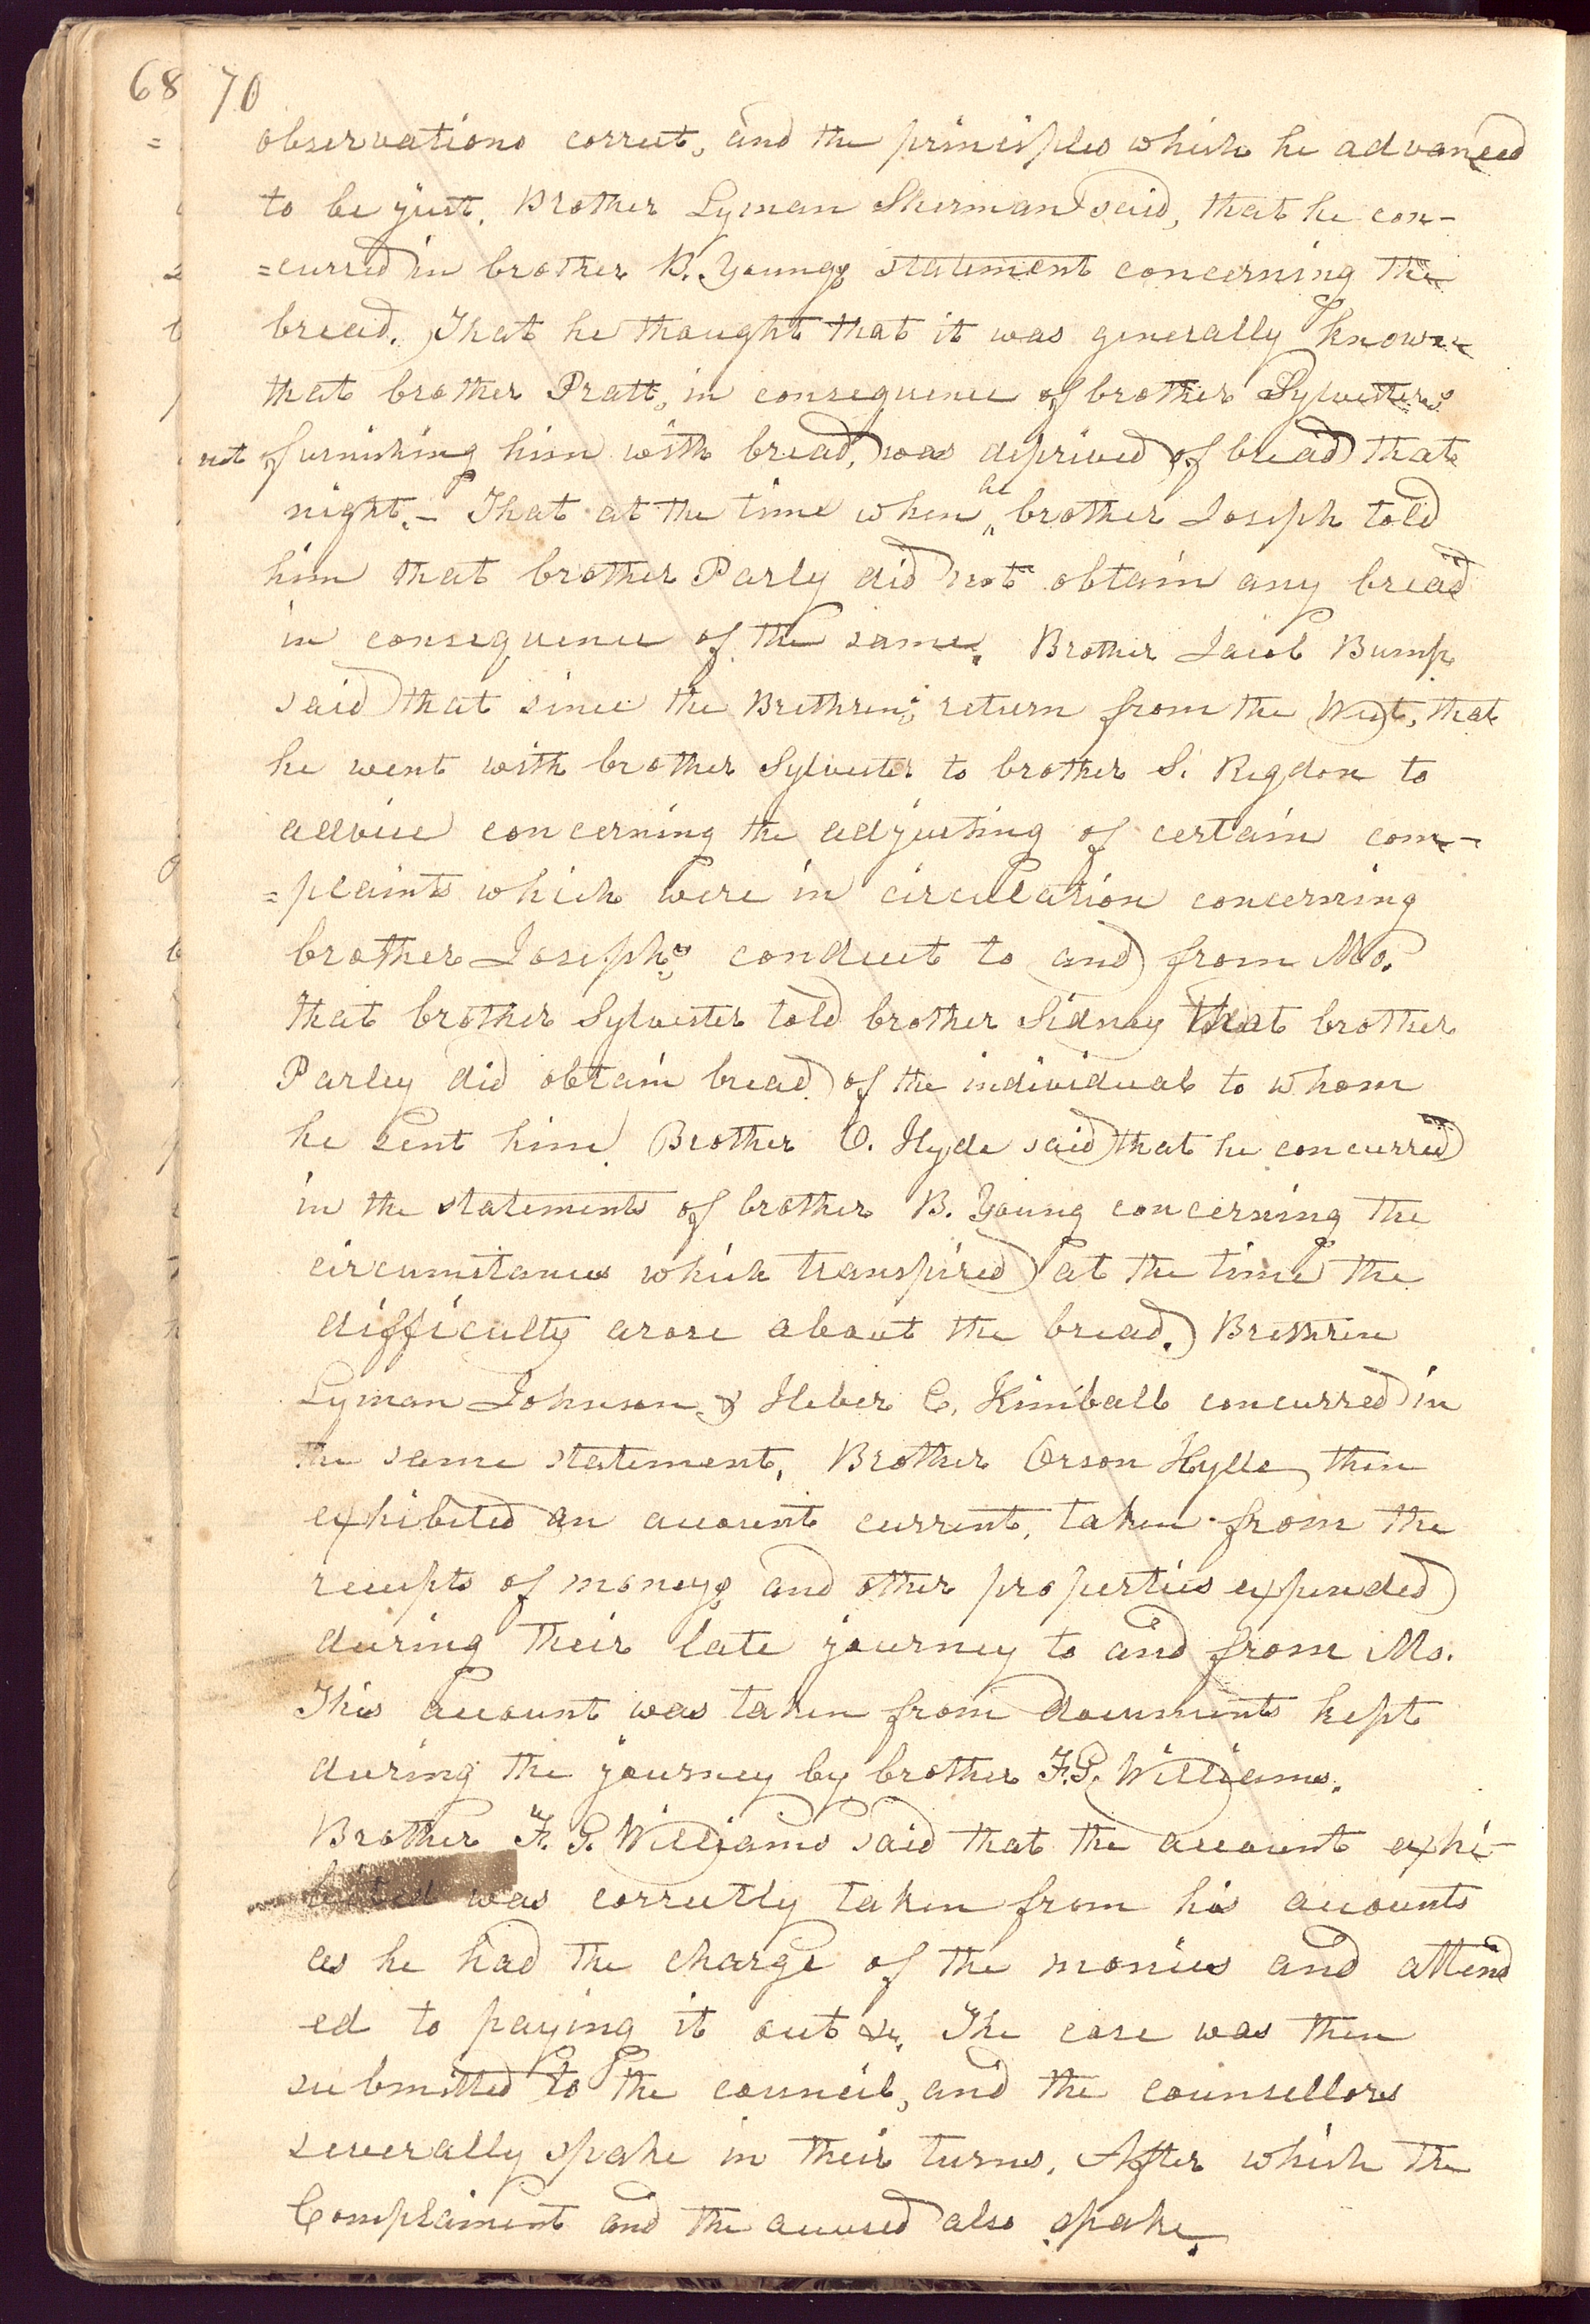 68 70
observations correct, and the principles which he advanced
to be just. Brother Lyman Sherman said, that he con-
=curred in brother B. Youngs statement concerning the
bread. That he thought that it was generally known
that brother Pratt, in consequence of brother Sylvesters
not furnishing him with bread, was deprived of bread that
night.- That at the time when he brother Joseph told
him that brother Parly did not obtain any bread
in consequence of the same. Brother Jacob Bump
said that since the Brethren's return from the West, that
he went with brother Sylvester to brother S. Rigdon to
advice concerning the adjusting of certain com-
=plaints which were in circulation concerning
brother Joseph's conduct to and from Mo.
that brother Sylvester told brother Sidney that brother
Parley did obtain bread of the individual to whom
he sent him. Brother O. Hyde said that he concurred
in the statements of brother B. Young concerning the
circumstances which transpired at the time the
difficulty arose about the bread. Brethren
Lyman Johnson & Heber C. Kimball concurred in
the same statement. Brother Orson Hyde then
exhibited an account current, taken from the
receipts of moneys and other properties expended
during their late journey to and from Mo.
This account was taken from documents kept
during the journey by brother F.G. Williams.
Brother F. G. Williams said that the account exhi-
bited was correctly taken from his accounts
as he had the charge of the monies and attend
ed to paying it out &c. The case was then
submitted to the council, and the counsellors
severally spake in their turns. After which the
Complainent and the accused also spake.